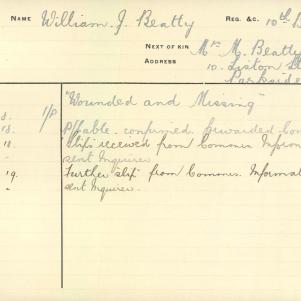 NAME William J. Beatty REG. &C. 10th B
NEXT OF KIN Mrs M. Beatty
ADDRESS 10. Liston St
Parkside
"Wounded and Missing"
8. 1/P
18. Affable. confirmed. forwarded
18. Slips received from Commrs Inform
sent Inquirer
19. Further slip from Commrs. Informat
" sent Inquirer.